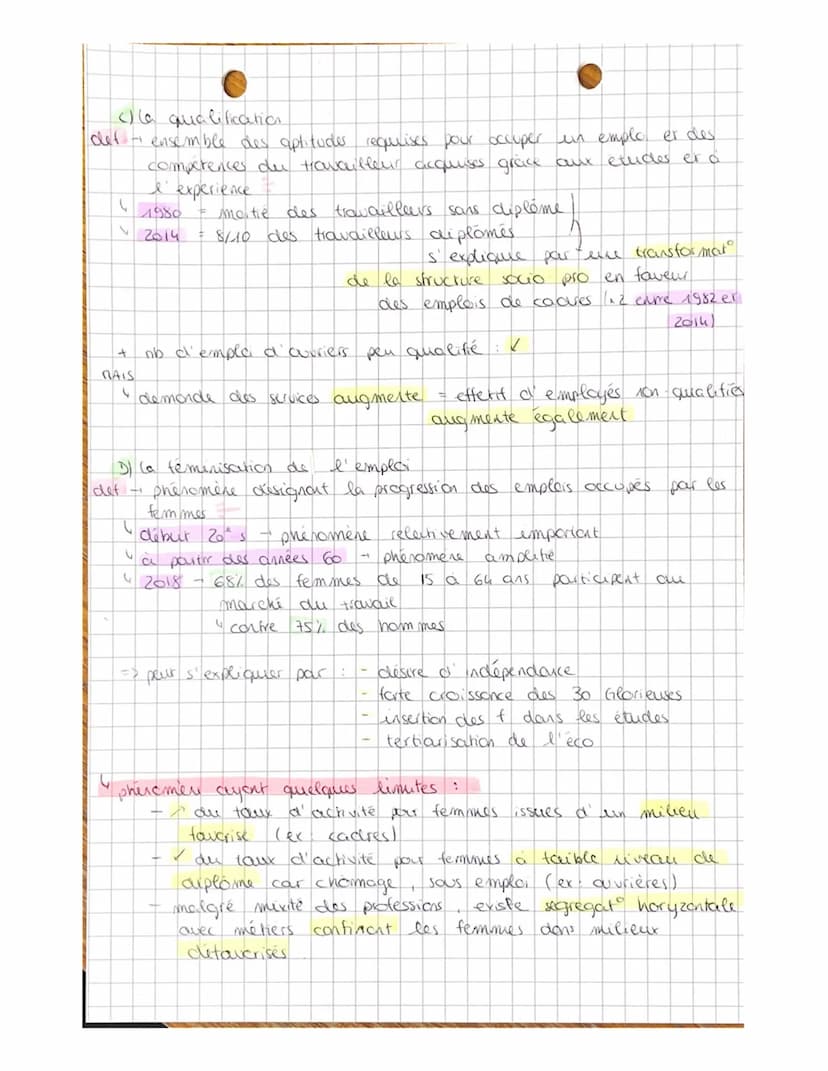 C) La qualification
def → ensemble des aptitudes requises pour occuper un emploi et des
compétences du travailleur acquises grâce aux études et à
l'expérience
↳ 1980 = moitié des travailleurs sans diplôme
↳ 2014 = 8/10 des travailleurs diplômés
s'explique par une transformat°
de la structure socio pro en faveur
des emplois de cadres (x2 entre 1982 et
2014)
+ nb d'emploi d'ouvriers peu qualifié : ↙
MAIS
↳ demande des services augmente = effectif d'employés non-qualifiés
augmente également
D) La féminisation de l'emploi
def → phénomène désignant la progression des emplois occupés par les
femmes
↳ début 20e s → phénomène relativement important
↳ à partir des années 60 → phénomène amplifié
↳ 2018 → 68% des femmes de 15 à 64 ans participent au
marché du travail
↳ contre 75% des hommes
=> peut s'expliquer par : - désire d'indépendance
- forte croissance des 30 Glorieuses
- insertion des f dans les études
- tertiarisation de l'éco
↳ phénomène ayant quelques limites :
- ↗ du taux d'activité pour femmes issues d'un milieu
favorisé (ex: cadres)
- ↙ du taux d'activité pour femmes à faible niveau de
diplôme car chômage, sous emploi (ex: ouvrières)
- malgré mixité des professions, existe ségrégat° horyzontale
avec métiers confinant les femmes dans milieux
défavorisés